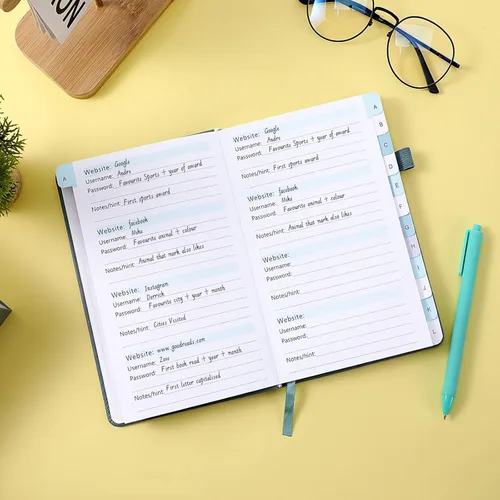 ION
A
Website: Google
Username: Andre
Password: Favourite Sports + year of award
Notes/hint: First sports award
Website: facebook
Username: Mike
Password: Favourite animal + colour
Notes/hint: Animal that mark also likes
Website: Instagram
Username: Derrick
Password: Favourite city + year + month
Notes/hint: Cities Visited
Website: www.goodreads.com
Username: Zoe
Password: First book read + year + month
Notes/hint: First letter capitalised
Website: Google
Username: Andre
Password: Favourite Sports + year of award
Notes/hint: First sports award
Website: facebook
Username: Mike
Password: Favourite animal + colour
Notes/hint: Animal that mark also likes
Website:
Username:
Password:
Notes/hint:
Website:
Username:
Password:
Notes/hint:
A
B
C
D
E
F
G
H
I
J
K
L